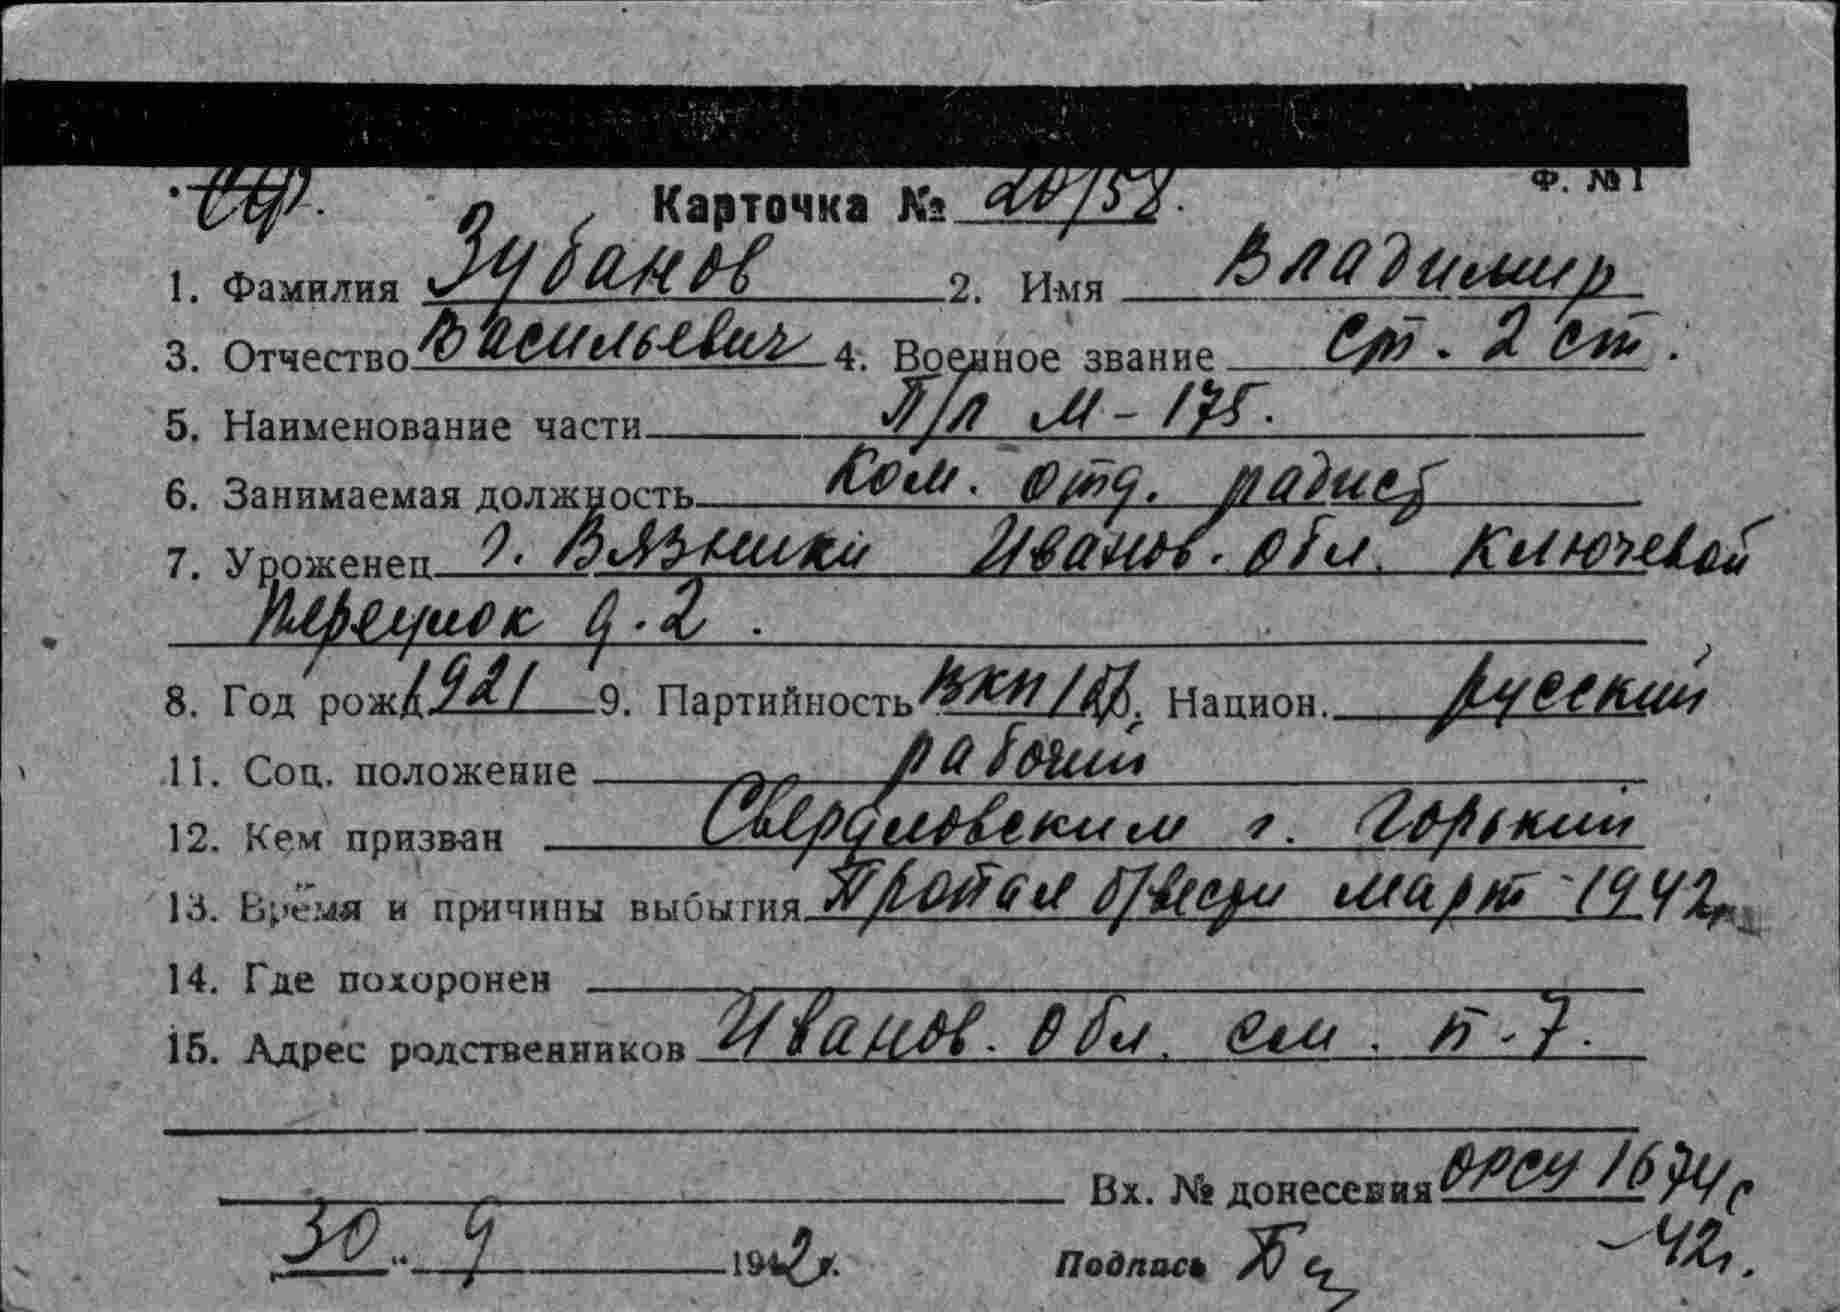 СФ.
Ф. №1
Карточка № 20/58.
1. Фамилия Зубанов 2. Имя Владимир
3. Отчество Васильевич 4. Военное звание Ст. 2 ст.
5. Наименование части П/л М-175.
6. Занимаемая должность Ком. отд. радист
7. Уроженец г. Вязники Иванов. обл. Ключевой
переулок д. 2.
8. Год рожд. 1921 9. Партийность ВКП/б/. Национ. русский
11. Соц. положение рабочий
12. Кем призван Свердловским г. Горький
13. Время и причины выбытия Пропал б/вести март 1942г.
14. Где похоронен
15. Адрес родственников Иванов. обл. см. п-7.
Вх. № донесения ОРСУ 1674с
-42г.
30. 9 1942г. Подпись